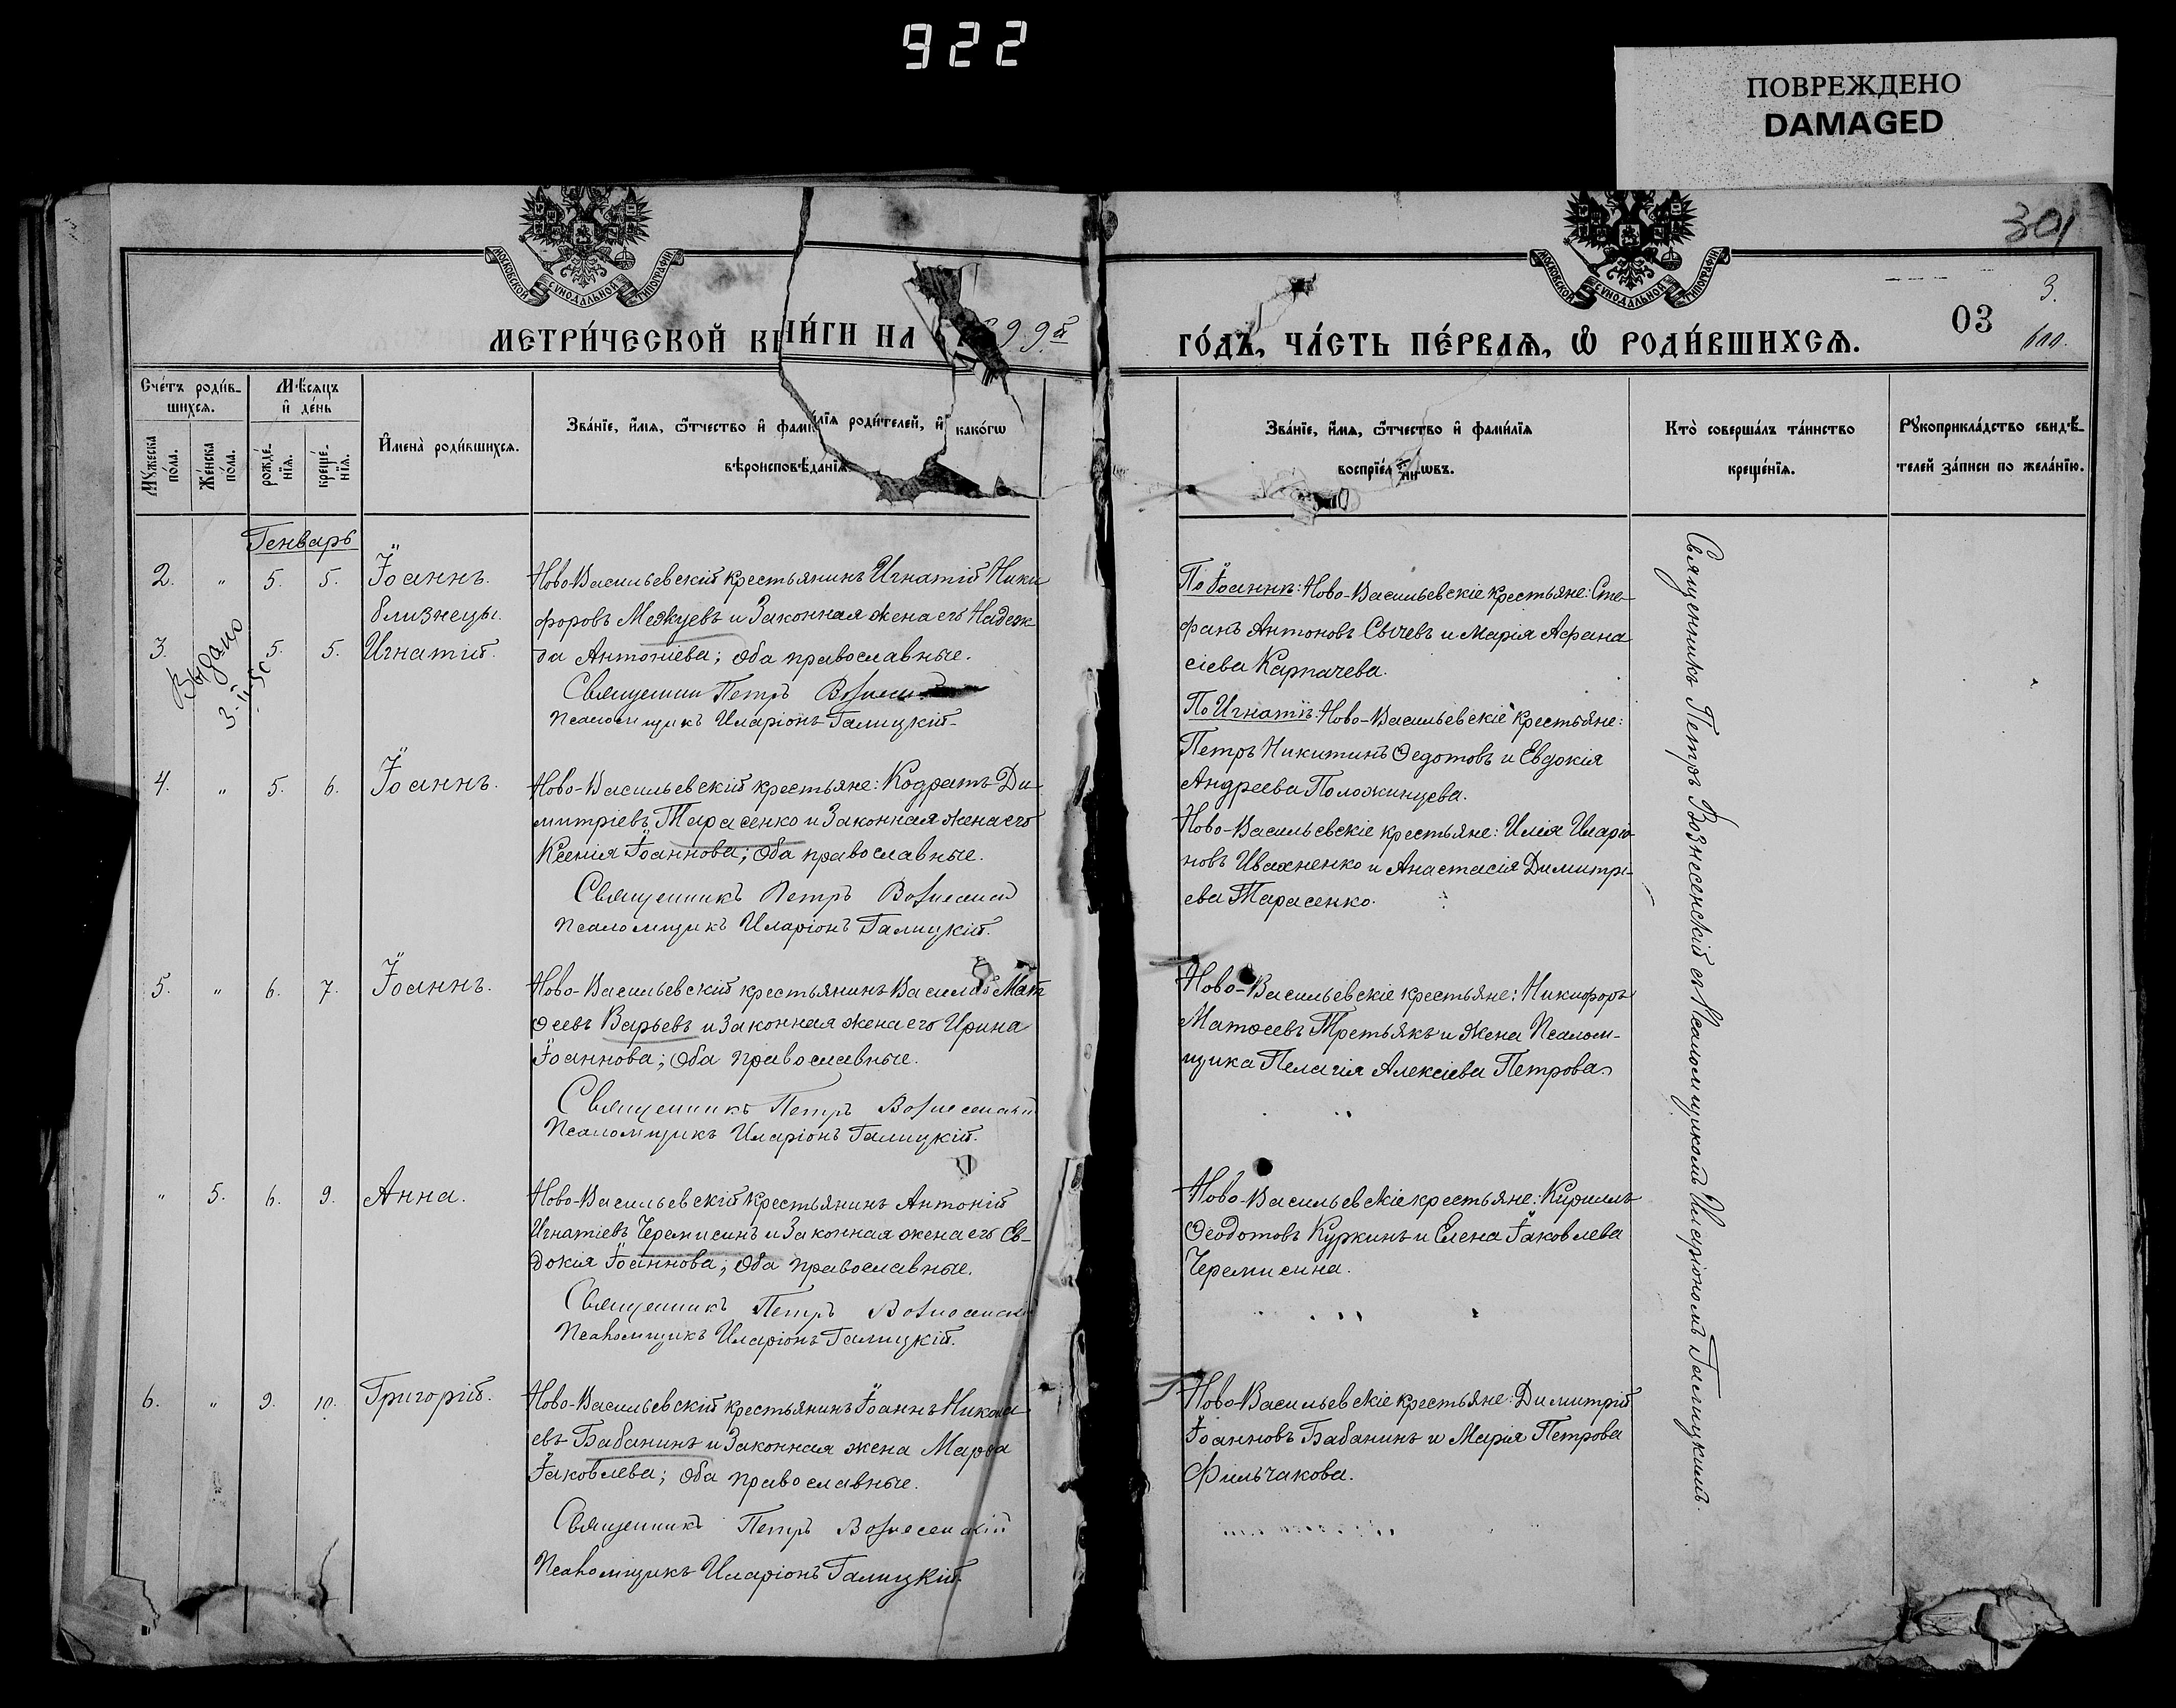 922
ПОВРЕЖДЕНО
DAMAGED
301
МОСКОВСКОЙ СѴНОДАЛЬНОЙ ТИПОГРАФІИ
МОСКОВСКОЙ СѴНОДАЛЬНОЙ ТИПОГРАФІИ
3.
03
МЕТРИ́ЧЕСКОЙ КНИ́ГИ НА 99й
ГО́ДЪ, ЧА́СТЬ ПЕ́РВАѦ, Ѽ РОДИ́ВШИХСѦ.
Сче́тъ роди́в-
шихсѧ.
Мѣ́сѧцъ
и҆ де́нь
Мꙋ́жеска по́ла.
Же́нска по́ла.
рожде́-
нїѧ.
креще́-
нїѧ.
И҆мена̀ роди́вшихсѧ.
Зва́нїе, и҆́мѧ, ѻ҆́тчество и҆ фами́лїѧ роди́телей, и҆ како́гѡ
вѣроисповѣ́данїѧ.
Зва́нїе, и҆́мѧ, ѻ҆́тчество и҆ фами́лїѧ
воспрїе́мникѡвъ.
Кто̀ соверша́лъ та́инство
креще́нїѧ.
Рꙋкоприкла́дство свидѣ́-
телей за́писи по жела́нїю.
Генварь
2. „ 5. 5. Іоаннъ.
близнецы.
3. 5. 5. Игнатій.
Выдано
Ново-Васильевскій крестьянинъ Игнатій Ники
форовъ Межуевъ и Законная жена его Надеж
да Антоніева; Оба православные.
Священни Петръ
Псаломщикъ Иларіонъ Галицкій.
По Іоаннѣ: Ново-Васильевскіе крестьяне: Сте-
фанъ Антоновъ Сычевъ и Марія Афана
сіева Карпачева.
По Игнатіѣ: Ново-Васильевскіе крестьяне:
Петръ Никитинъ Ѳедотовъ и Евдокія
Андреева Положинцева.
4. „ 5. 6. Іоаннъ.
Ново-Васильевскій крестьяне: Кодратъ Ди
митріевъ Тарасенко и Законная жена его
Ксенія Іоаннова; Оба православные.
Священникъ Петръ Вознесенскій
Псаломщикъ Иларіонъ Галицкій.
Ново-Васильевскіе крестьяне: Илія Иларіо-
новъ Ивахненко и Анастасія Димитрі-
ева Тарасенко.
5. „ 6. 7. Іоаннъ.
Ново-Васильевскій крестьянинъ Василій Мат
ѳеевъ Варьевъ и Законная жена его Ирина
Іоаннова; Оба православные.
Священникъ Петръ Вознесенскій
Псаломщикъ Иларіонъ Галицкій.
Ново-Васильевскіе крестьяне: Никифоръ
Матѳеевъ Третьякъ и жена Псалом-
щика Пелагія Алексіева Петрова.
„ 5. 6. 9. Анна.
Ново-Васильевскій крестьянинъ Антоній
Игнатіевъ Черемисинъ и Законная жена его Ев-
докія Іоаннова; Оба православные.
Священникъ Петръ Вознесенскій
Псаломщикъ Иларіонъ Галицкій.
Ново-Васильевскіе крестьяне: Кириллъ
Ѳеодотовъ Куркинъ и Елена Іаковлева
Черемисина.
6. „ 9. 10. Григорій.
Ново-Васильевскій крестьянинъ Іоаннъ Никола
евъ Бабанинъ и Законная жена Марѳа
Іаковлева; Оба православные.
Священникъ Петръ Вознесенскій
Псаломщикъ Иларіонъ Галицкій.
Ново-Васильевскіе крестьяне: Димитрій
Іоанновъ Бабанинъ и Марія Петрова
Фильчакова.
Священникъ Петръ Вознесенскій съ Псаломщикомъ Иларіономъ Галицкимъ